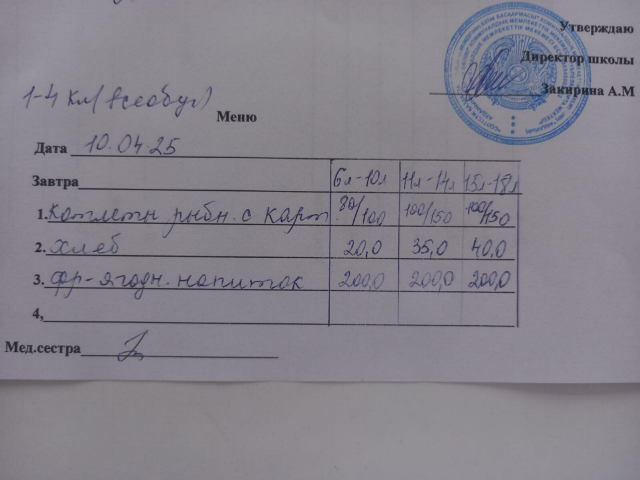 Утверждаю
Директор школы
Закирина А.М
1-4 кл (всеобуч)
Меню
Дата 10.04.25
Завтра 6л-10л 11л-14л 15л-18л
1. Котлеты рыбн. с карт 80/100 100/150 100/150
2. хлеб 20,0 35,0 40,0
3. фр-ягодн. напиток 200,0 200,0 200,0
4,
Мед.сестра